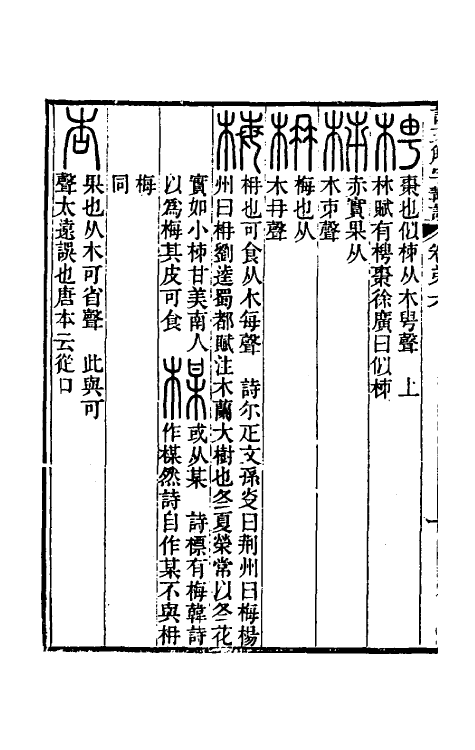 梬 棗也佀柹从木甹聲 上
林賦有梬棗徐廣曰佀柹
柹 赤實果从
木𠂔聲
枏 梅也从
木冄聲
梅 枏也可食从木每聲 詩尔疋文孫炎曰荊州曰梅楊
州曰枏劉逵蜀都賦注木蘭大樹也冬夏榮常以冬花
實如小柹甘美南人
以爲梅其皮可食
楳 或从某 詩標有梅韓詩
作楳然詩自作某不與枏
梅
同
杏 果也从木可省聲 此與可
聲太遠誤也唐本云從口